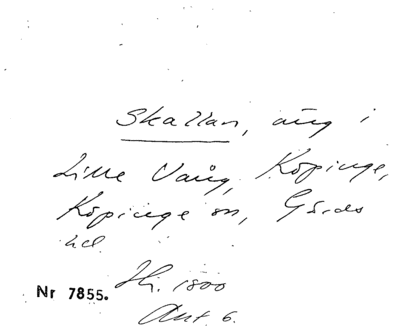 Skallan, äng i
Lille Vång, Köpinge,
Köpinge sn, Gärds
hd.
Hi. 1800
Nr 7855.
Akt 6.